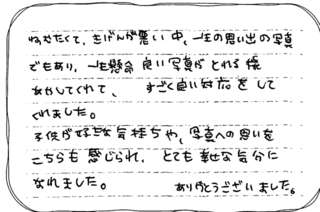 ねむたくて、きげんが悪い中、一生の思い出の写真
でもあり、一生懸命 良い写真が とれる様
あやしてくれて、 すごく良い対応をして
くれました。
子供が好きな気持ちや、写真への思いを
こちらも感じられ、とても幸せな気分に
なれました。 ありがとうございました。